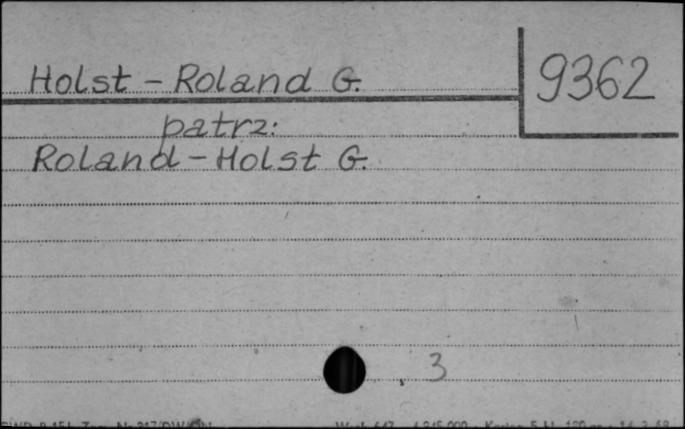 Holst - Roland G.
9362
patrz:
Roland - Holst G.
3